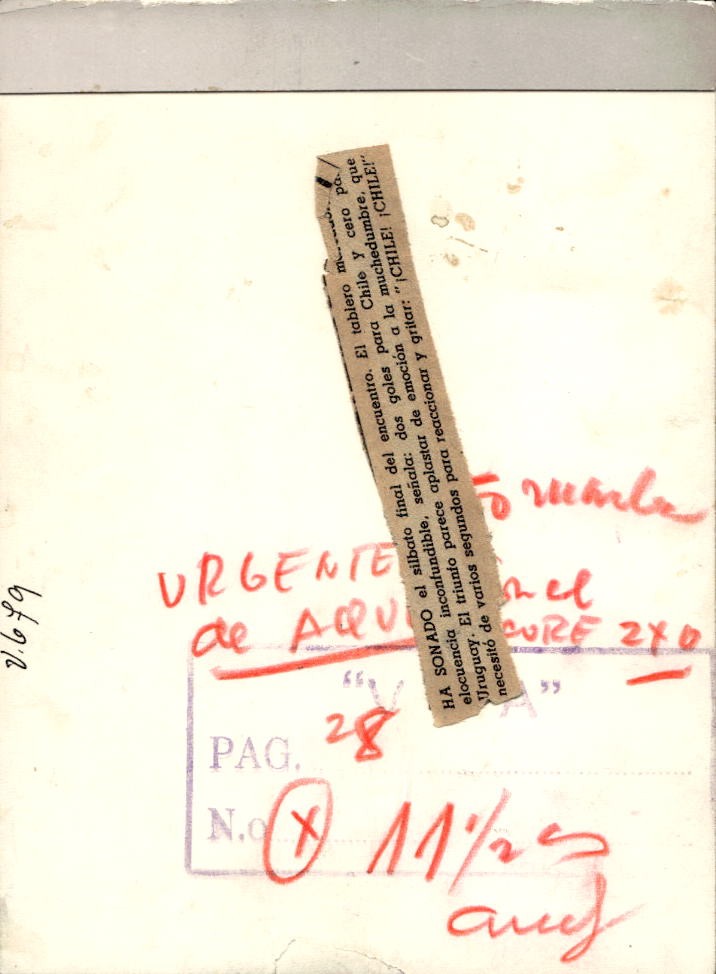 HA SONADO el silbato final del encuentro. El tablero
elocuencia inconfundible, señala: dos goles para Chile y cero
Uruguay. El triunfo parece aplastar de emoción a la muchedumbre, que
necesitó de varios segundos para reaccionar y gritar: "¡CHILE! ¡CHILE!"
URGENTE
de 2X0
"V A"
PAG. 28
N.o X 11 1/2
V.679